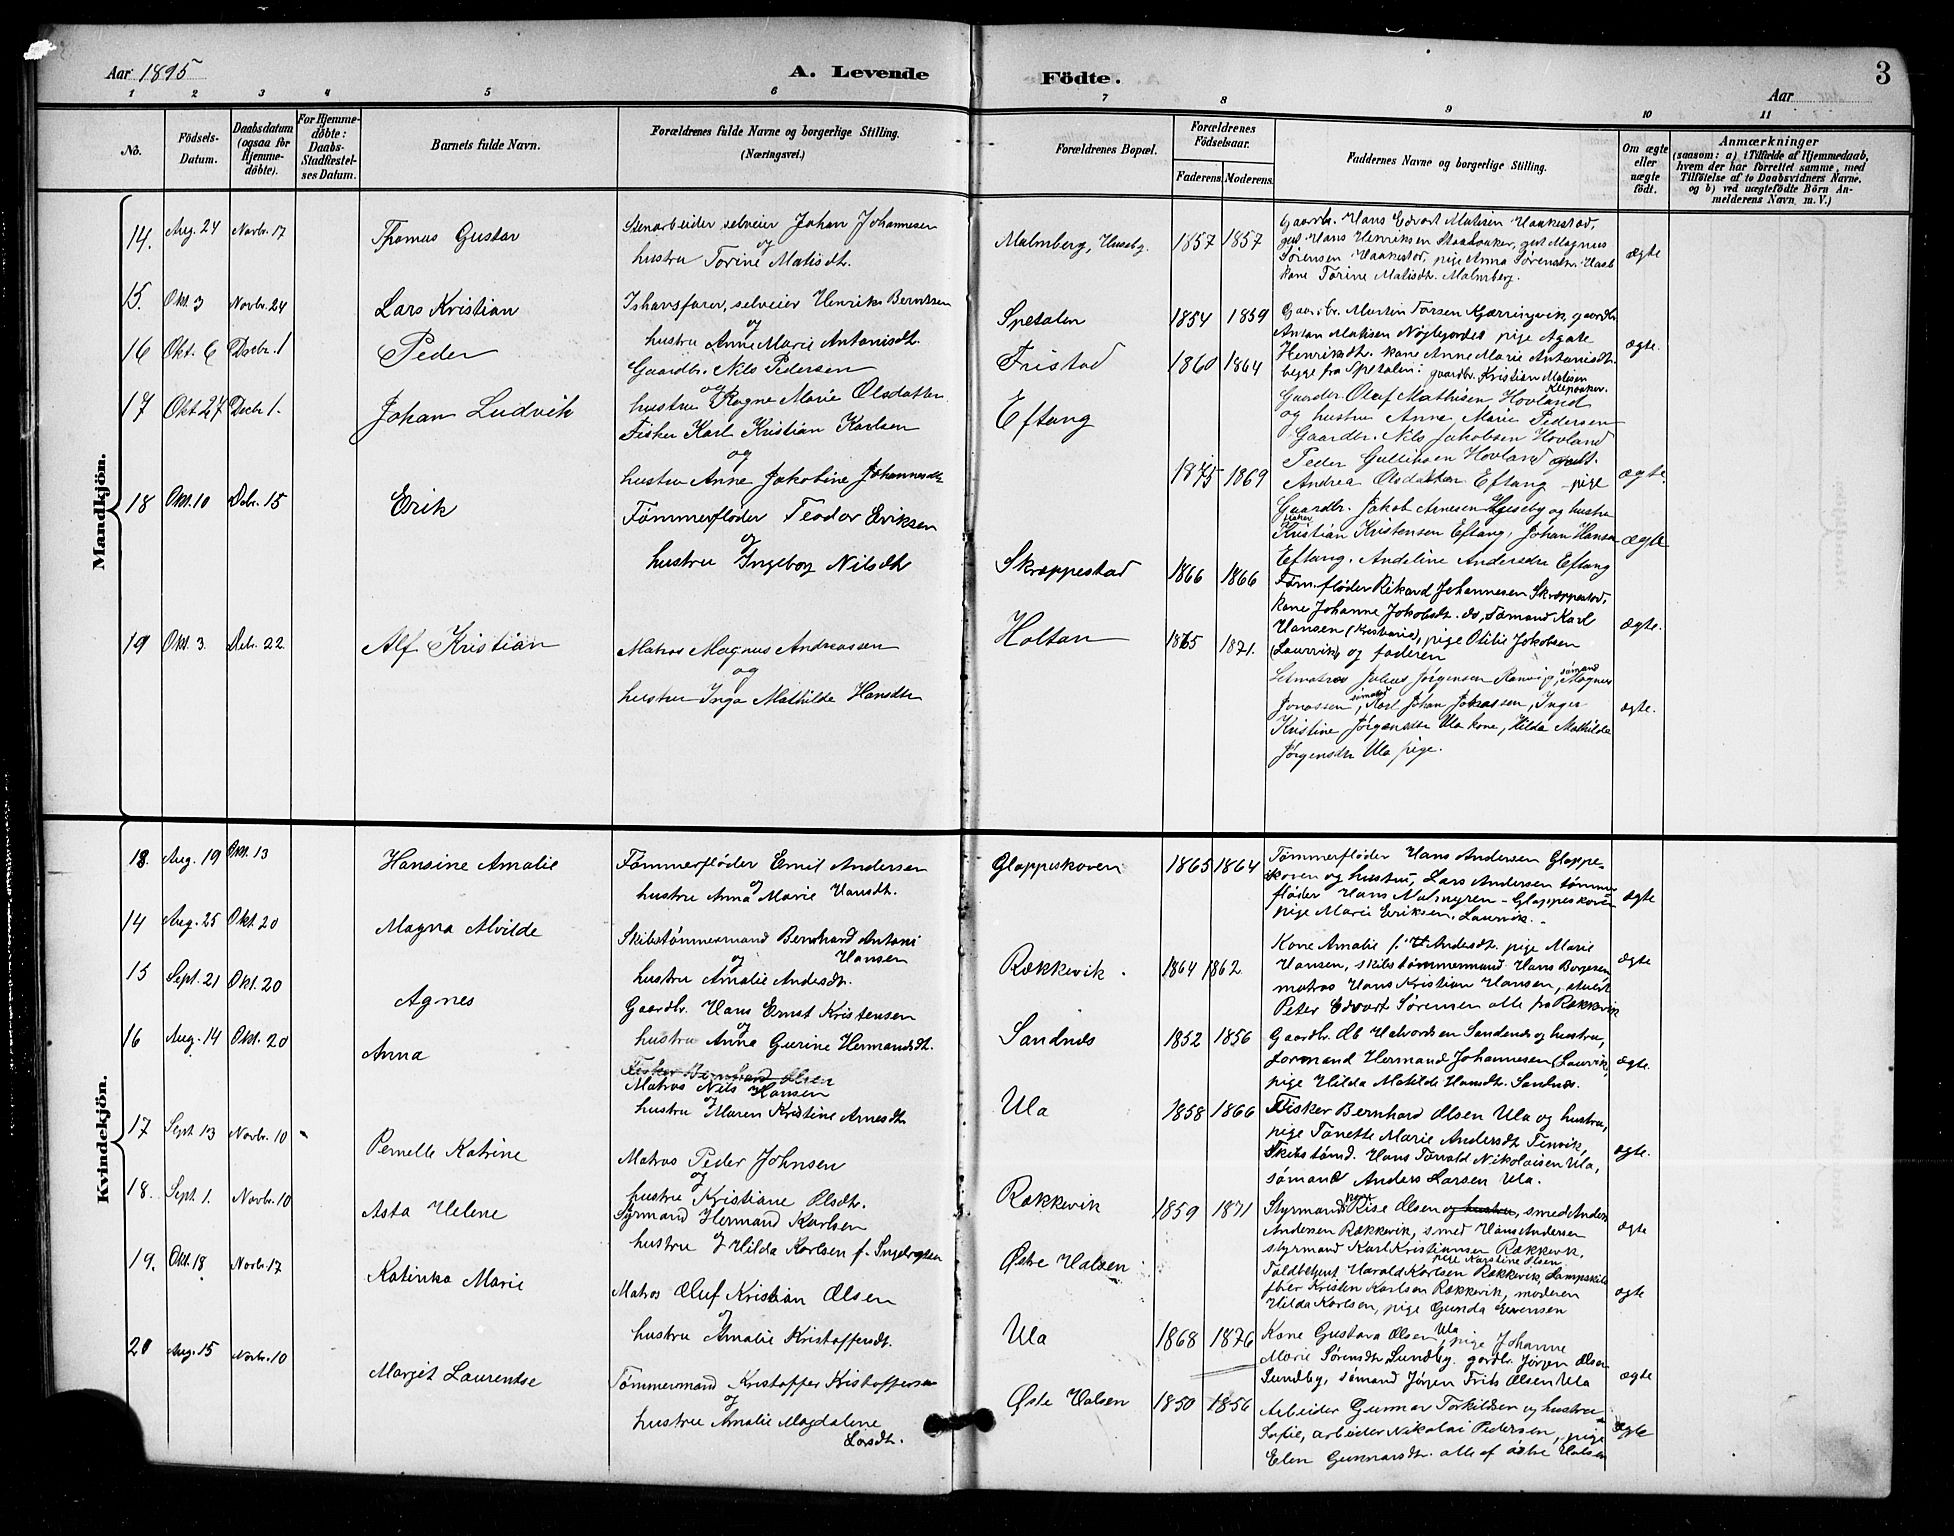 Aar 1895
A. Levende
Födte.
Aar
3
1 2 3 4 5 6 7 8 9 10 11
No.
Födsels-
Datum.
Daabsdatum
(ogsaa for
Hjemme-
døbte).
For Hjemme-
døbte:
Daabs-
Stadfæstel-
ses Datum.
Barnets fulde Navn.
Forældrenes fulde Navne og borgerlige Stilling.
(Næringsvei.)
Forældrenes Bopæl.
Forældrenes
Födselsaar.
Faderens. Moderens.
Faddernes Navne og borgerlige Stilling.
Om ægte
eller
uægte
födt.
Anmærkninger
(saasom: a) i Tilfælde af Hjemmedaab,
hvem der har forrettet samme, med
Tilföielse af to Daabsvidners Navne.
og b) ved uægtefödte Börn An-
melderens Navn, m. V.)
Mandkjön.
14. Aug. 24 Novbr. 17 Thomas Gustav
Stenarbeider selveier Johan Johannesen
og
hustru Torine Matisdt.
Malmberg, Huseby. 1857 1857
Gaardbr. Hans Edvart Matisen Haakestad,
gut Hans Henriksen Skaaraaker, gut Magnus
Sørensen Haakestad, pige Anna Sørensdtr. Haak
kone Torine Matisdt. Malmberg.
ægte
15. Okt. 3 Novbr. 24 Lars Kristian
Ishavsfarer, selveier Henrik Berntsen
og
hustru Anne Marie Antonisdt.
Spetalen 1854 1859
Gaardbr. Martin Torsen Kjærringvik, gaardbr.
Anton Matisen Nøglegaarden pige Agate
Henriksdt. kone Anne Marie Antonisdt.
begge fra Spetalen: gaardbr. Kristian Matisen
Kleppaaker.
ægte.
16 Okt. 6 Decbr. 1 Peder
Gaardbr. Nils Pedersen
og
hustru Ragne Marie Olsdatter
Fristad 1860 1864
Gaardbr Olaf Mathisen Hovland
og hustru Anne Marie Pedersen
Gaardbr. Nils Jakobsen Hovland
Peder Gulliksen Hovland
Andrea Olsdatter Eftang pige
ægte.
17 Okt 27 Decbr 1. Johan Ludvik
Fisker Karl Kristian Karlsen
og
hustru Anne Jakobine Johannesdt
Eftang 1875 1869
Gaardbr. Jakob Arnesen Hæseby og hustru
fisker
Kristian Kristensen Eftang, Johan Hansen
Eftang. Andeline Andersdtr Eftang
ægte
18 Okt. 10 Debr. 15 Erik
Tømmerfløder Teodor Eriksen
og
hustru Ingeborg Nilsdtr
Skræppestad 1866 1866
Tøm. fløder Rikard Johannesen Skræppestad,
kone Johanne Jakobsdt. do, Sømand Karl
Hansen (Kristiania), pige Otilie Jakobsen
(Laurvik) og faderen
ægte.
19 Okt. 3. Debr. 22 Alf Kristian
Matros Magnus Andreassen
og
hustru Inga Mathilde Hansdtr
Holtan 1865 1871.
Letmatros Julius Jørgensen Rønvig, sømand Magnus
Jonassen, sømand Karl Johan Jonassen, Inger
Kristine Jørgensdtr Ula kone, Hilda Mathilda
Jørgensdtr Ula pige.
ægte.
Kvindekjön.
13. Aug. 19 Okt. 13 Hansine Amalie
Tømmerfløder Emil Andersen
og
hustru Anna Marie Hansdt.
Gloppeskoven 1865 1864
Tømmerfløder Hans Andersen Gloppe-
skoven og hustru, Lars Andersen tømmer
fløder Hans Malmgren - Gloppeskoven
pige Marie Eriksen, Laurvik.
ægte
14 Aug. 25 Okt 20 Magna Alvilde
Skibstømmermand Bernhard Antoni
Hansen
og
hustru Amalie Andersdt.
Rækkevik. 1864 1862.
Kone Amalie f. Andersdt. pige Marie
Hansen, skibstømmermand Hans Borgersen,
matros Hans Kristian Hansen, stuert
Peter Edvart Sørensen alle fra Rækkevik
ægte
15 Sept. 21 Okt. 20 Agnes
Gaardbr. Hans Ernst Kristensen
og
hustru Anna Gurine Hermandsdt.
Sandnæs 1852 1856
Gaardbr. Ab Halvorsen Sandnæs og hustru,
formand Hermand Johannesen Laurvik,
pige Hilda Matilde Hansdt. Sandnæs.
ægte.
16 Aug. 14 Okt. 20 Anna
Fisker Bernhard Olsen
Matros Nils Hansen
og
hustru Maren Kristine Arnesdt
Ula 1858 1866
Fisker Bernhard Olsen Ula og hustru,
pige Tonette Marie Andersdt Tenvik,
Skibstømd. Hans Torvald Nikolaisen Ula,
sømand Anders Larsen Ula.
ægte.
17 Sept 13 Novbr. 10 Pernelle Katrine
Matros Peder Johnsen
og
hustru Kristiane Olsdt.
Rækkevik 1859 1871
Styrmand Kise Olsen og hustru, smed Anders
Andersen Rækkevik, smed Hans Andersen
styrmand Karl Kristiansen Rækkevik,
pige Karstine Olsen.
ægte
18. Sept. 1. Novbr. 10 Asta Helene
Styrmand Hermand Karlsen
og
hustru Hilda Karlsen f.
Østre Halsen
Toldbetjent Harald Karlsen Rækkevik, Lampeskibs
fører Kristen Karlsen Rækkevik, moderen
Hilda Karlsen, pige Gunda Evensen
ægte
19. Okt. 18 Novbr. 17 Katinka Marie
Matros Oluf Kristian Olsen
og
hustru Amalie Kristoffersdt.
Ula 1868 1876
Kone Gustava Olsen Ula, pige Johanne
Marie Sørensdtr Sundby. gardbr. Jørgen Olsen
Sundby, sømand Jørgen Frits Olsen Ula
ægte
20 Aug. 15 Novbr. 10 Marget Laurentse
Tømmermand Kristoffer Kristoffersen
og
hustru Amalie Magdalene
Larsdt.
Østre Halsen 1850 1856
Arbeider Gunnar Torkildsen og hustru
Sofie, arbeider Nikolai Pedersen, pige
Elen Gunnarsdt. alle af østre Halsen
ægte